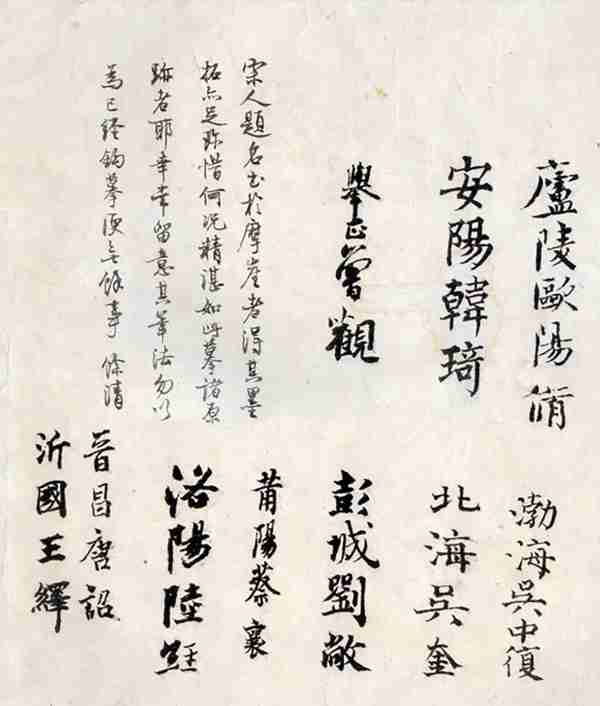 廬陵歐陽脩
安陽韓琦
舉正曾觀
宋人題名出於摩崖者得其墨
拓亦足珍惜何況精湛如此摹諸原
跡者耶幸常留意其筆法勿以
為已經鉤摹便無餘事 條清
渤海吳中復
北海吳奎
彭城劉敞
莆陽蔡襄
洛陽陸經
晉昌唐詔
沂國王繹